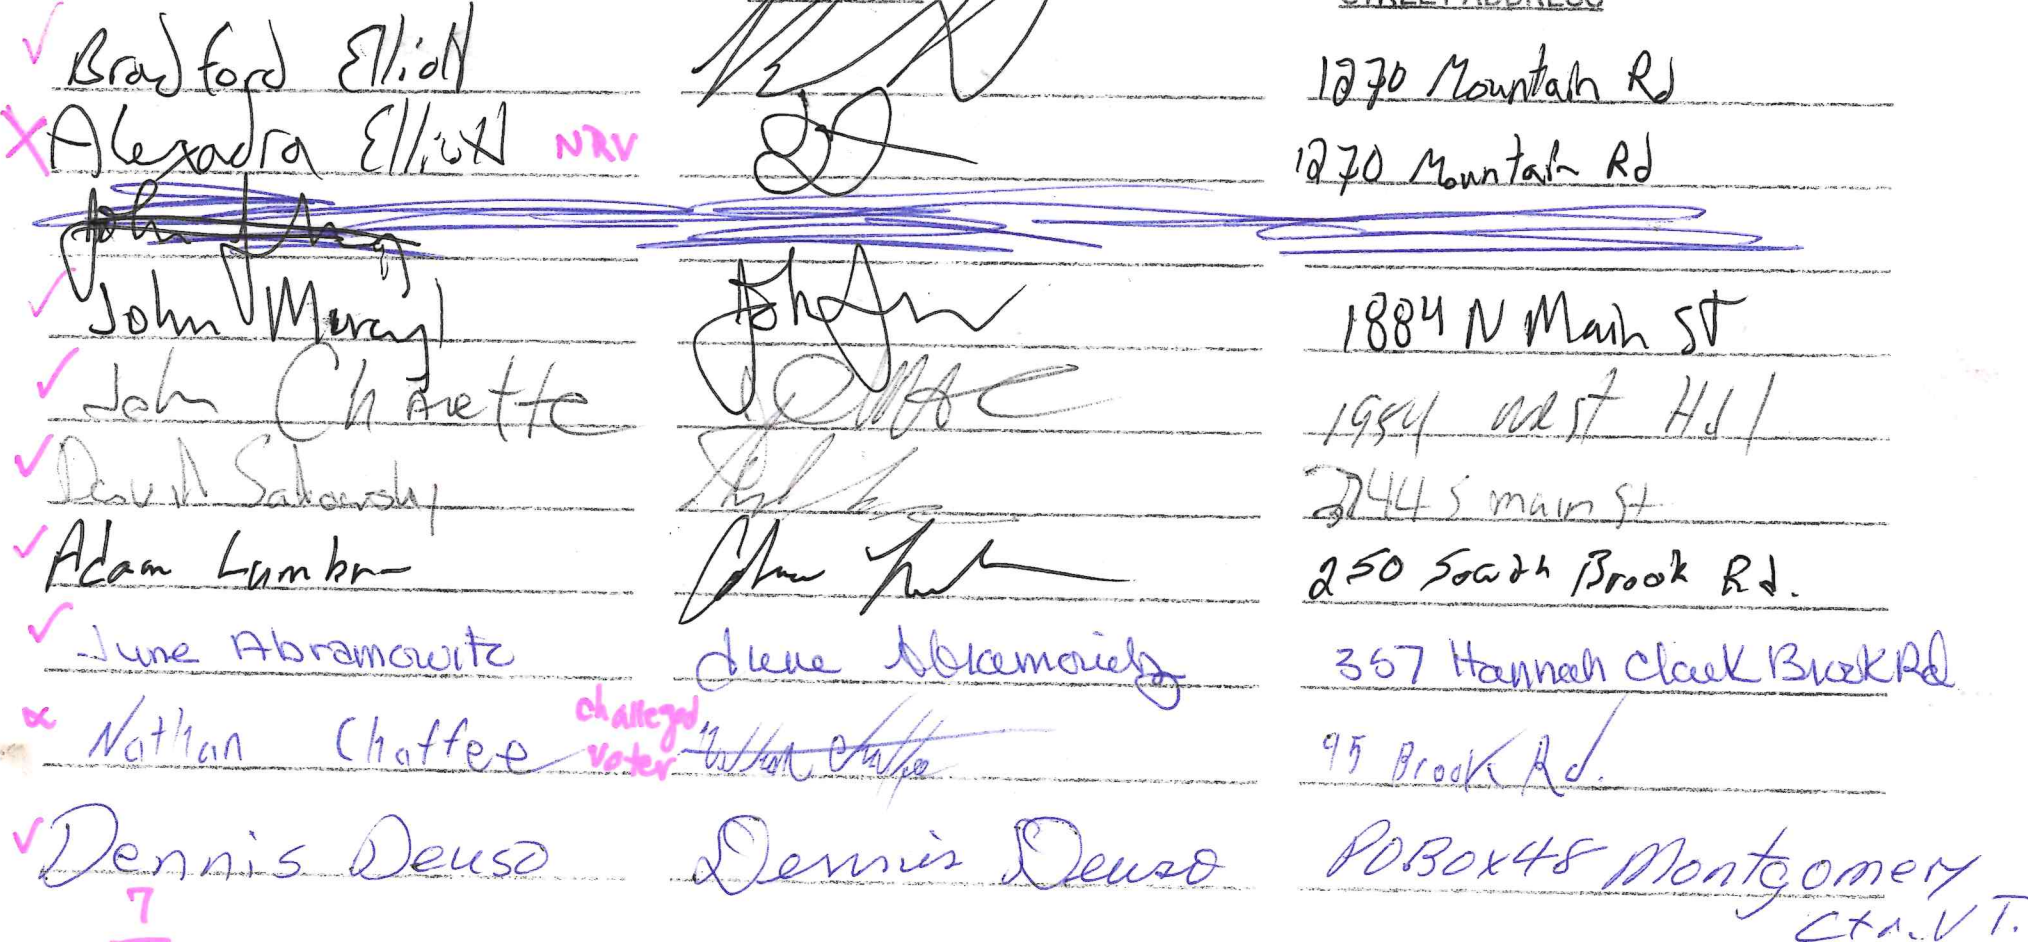 STREET ADDRESS
Bradford Elliott 1270 Mountain Rd
Alexadra Elliott NRV 1270 Mountain Rd
John
John Murcyl John 1884 N Main St
John Charette 1954 West Hill
David Sakowsky 2744 S main St
Adam Lumbra 250 South Brook Rd.
June Abramowitz June Abramowitz 357 Hannah Clark Brook Rd
Nathan Chaffee challeged voter Nathan Chaffee 95 Brook Rd.
Dennis Deuso Dennis Deuso PO BOx 48 Montgomery
Ctr. VT.
7